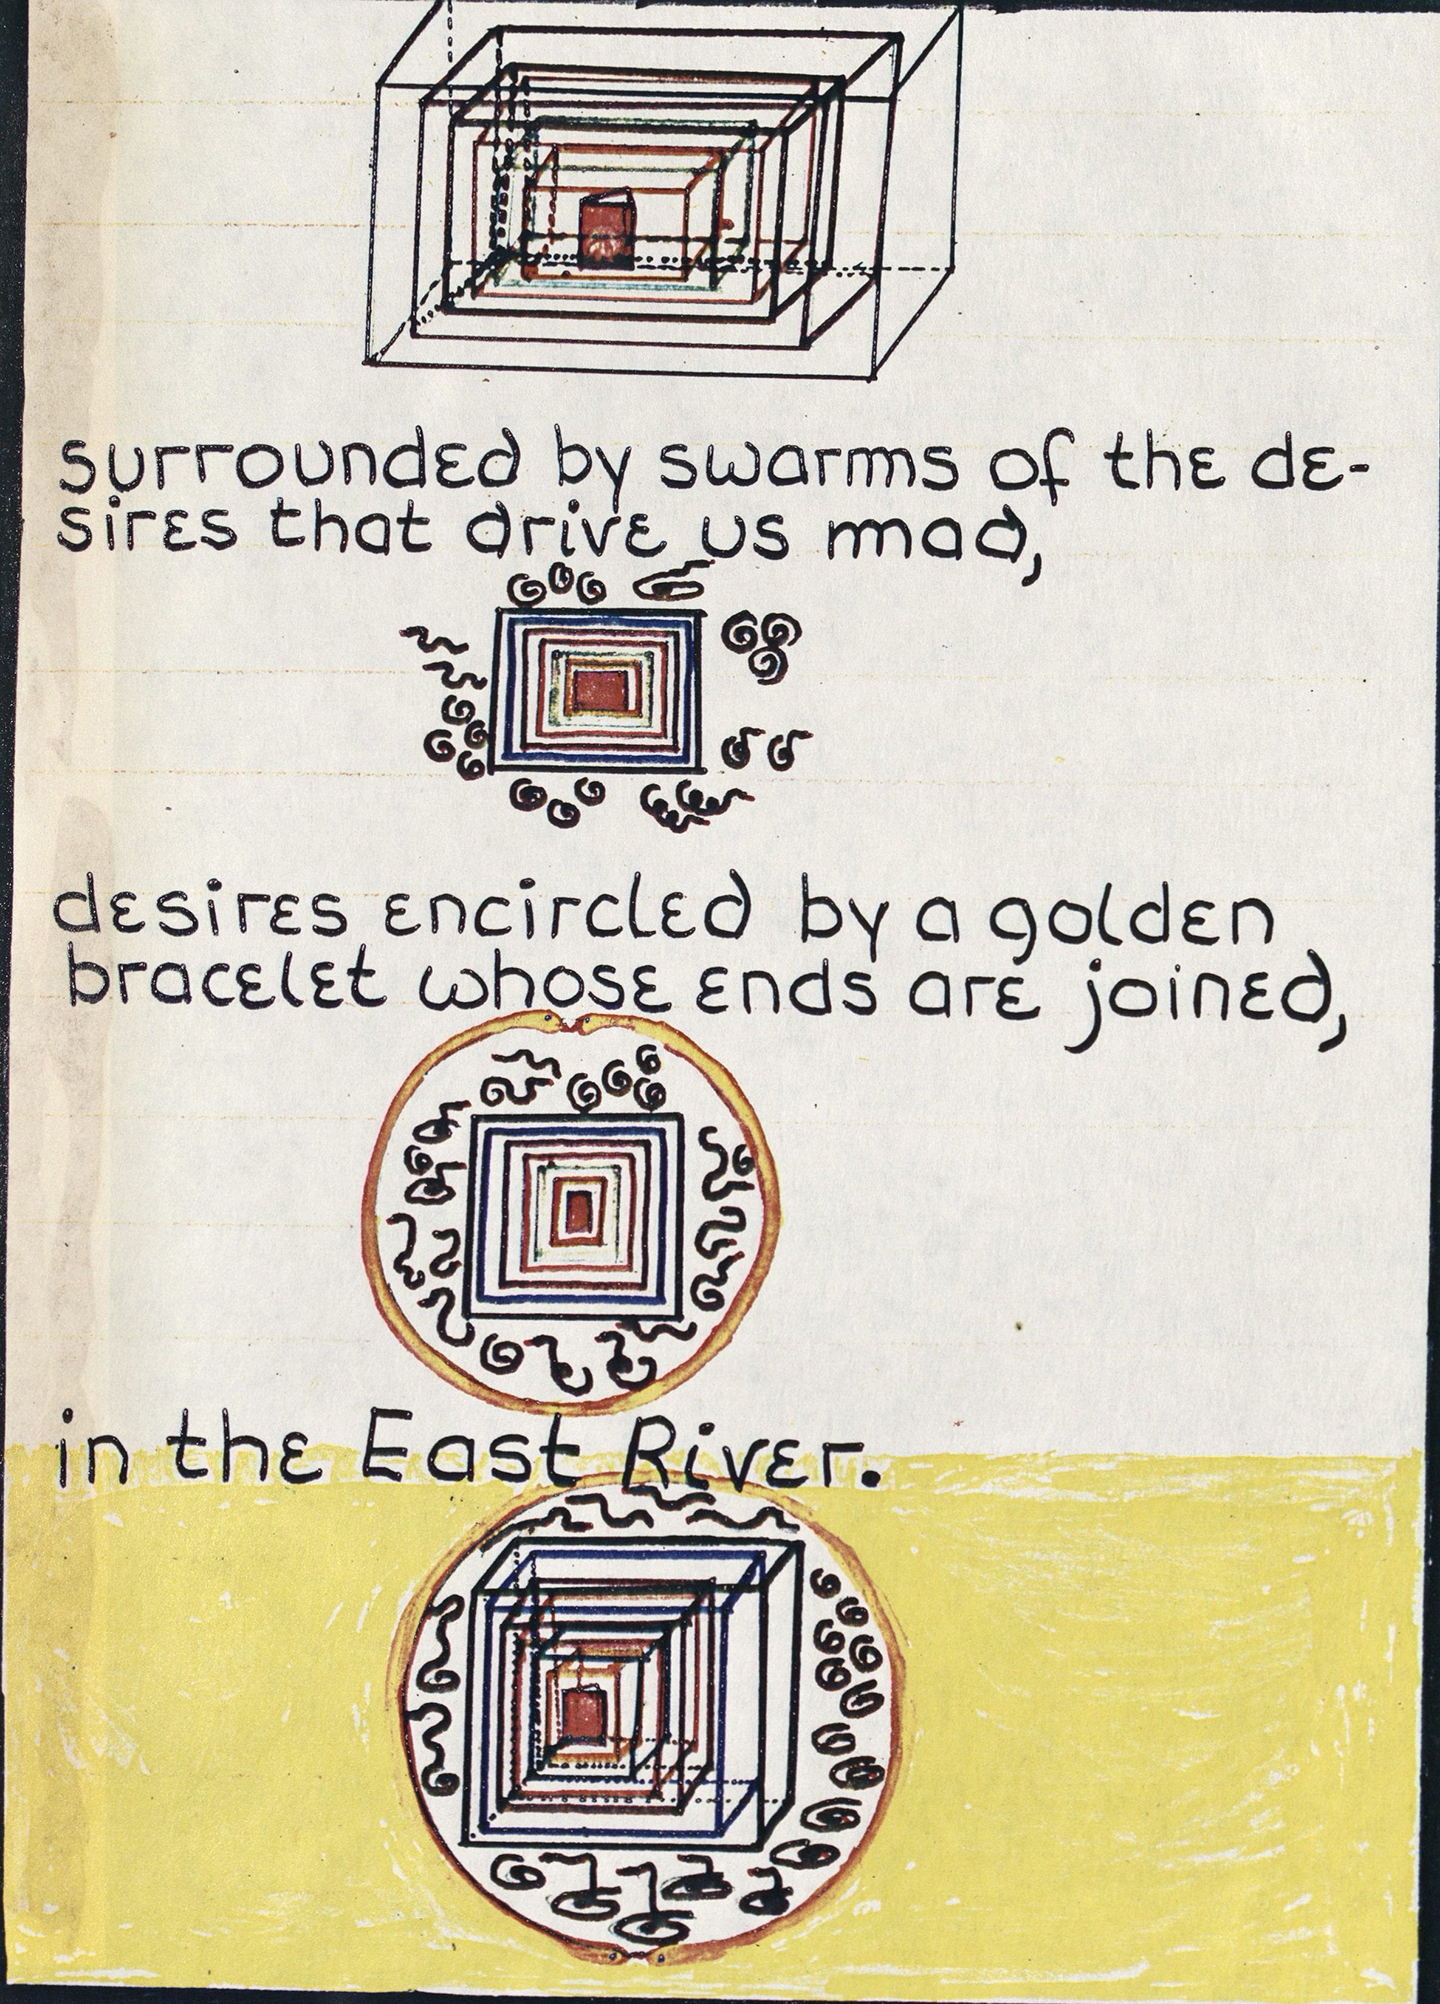 surrounded by swarms of the de-
sires that drive us mad,
desires encircled by a golden
bracelet whose ends are joined,
in the East River.